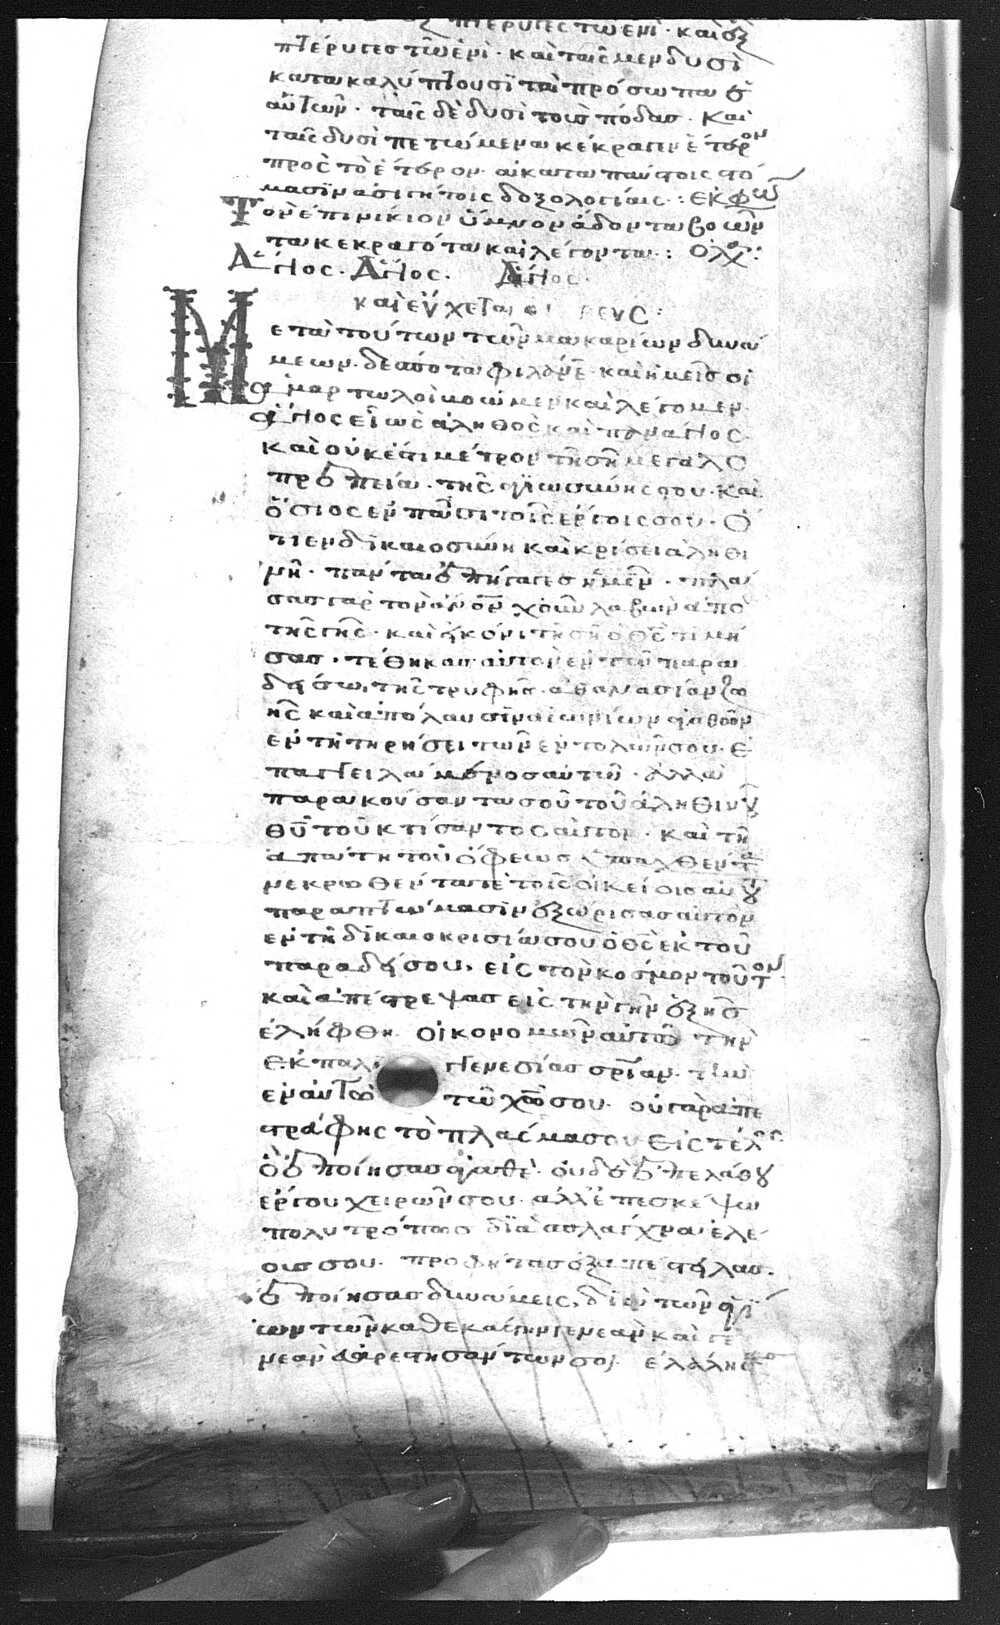 πτέρυγες τῶ ἑνὶ · καὶ ἓξ
πτέρυγες τῶ ἑνὶ · καὶ ταῖς μὲν δυσὶ
κατακαλύπτουσϊ τὰ πρόσωπα
αὐτῶν · ταῖς δὲ δυσὶ τοὺς πόδας · καὶ
ταῖς δυσὶ πετώμενα κέκραγεν ἕτερον
πρὸς τὸ ἕτερον · ἀκαταπαύστοις στό
μασϊν ἀσιγήτοις δοξολογίαις : ἐκφω
Τὸν ἐπινίκιον ὕμνον ἄδοντα βοῶν
τα κεκραγότα καὶ λέγοντα : Ὁ λα :
Ἅγιος · Ἅγιος · Ἅγιος ·
καὶ εὔχεται ὁ ρευς :
Μετὰ τούτων τῶν μακαρίων δυνά
μεων · δέσποτα φιλάνε · καὶ ἡμεῖς οἱ
ἁμαρτωλοὶ βοῶμεν καὶ λέγομεν ·
ἅγιος εἶ ὡς ἀληθὸς καὶ πανάγιος ·
καὶ οὐκ ἔστι μέτρον τῆ σῆ μεγαλο
πρεπεία · τῆς ἁγιωσύνης σου · καὶ
ὅσιος ἐν πᾶσι τοῖς ἔργοις σου · ὅ
τι ἐν δικαιοσύνη καὶ κρίσει ἀληθι
νῆ · πάντα ἐπήγαγες ἡμῖν · πλά
σας γὰρ τὸν ἀνον χοῦν λαβὼν ἀπὸ
τῆς γῆς · καὶ εἰκόνι τῆ σῆ ὁ θς τιμή
σας · τέθηκας αὐτὸν ἐν τῶ παρα
δείσω, τῆς τρυφῆς · ἀθανασίαν ζω
ῆς καὶ ἀπόλαυσϊν αἰωνίων ἀγαθῶν
ἐν τῆ τηρήσει τῶν ἐντολῶν σου · ἐ
παγγειλάμενος αὐτῶ · ἀλλὰ
παρακούσαντα σοῦ τοῦ ἀληθινοῦ
θυ τοῦ κτίσαντος αὐτόν · καὶ τῆ
ἀπάτη τοῦ ὄφεως ὑπαχθέντα
νεκρωθέντα τε τοῖς οἰκείοις αὐτοῦ
παραπτώμασϊν ἐξώρισας αὐτὸν
ἐν τῆ δικαιοκρισία σου ὁ θς ἐκ τοῦ
παραδείσου, εἰς τὸν κόσμον τοῦτον
καὶ ἀπέστρεψας εἰς τὴν γῆν ἐξ ἧς
ἐλήφθη · οἰκονομῶν αὐτῶ τὴν
ἐκ παλιγγενεσίας σρίαν · τὴν
ἐν αὐτῶ τῶ χω σου · οὐ γὰρ ἀπε
στράφης τὸ πλάσμα σου εἰς τέλος
ὃ ἐποίησας ἀγαθέ · οὐδὲ ἐπελάθου
ἔργου χειρῶν σου · ἀλλ' ἐπεσκέψω
πολυτρόπως διὰ σπλάγχνα ἐλέ
ους σου · προφήτας ἐξαπέστειλας ·
ἐποίησας δυνάμεις, διὰ τῶν ἁγί
ων τῶν καθ' ἑκάστην γενεὰν καὶ γε
νεὰν εὐαρεστησάντων σοι · ἐλάλησας